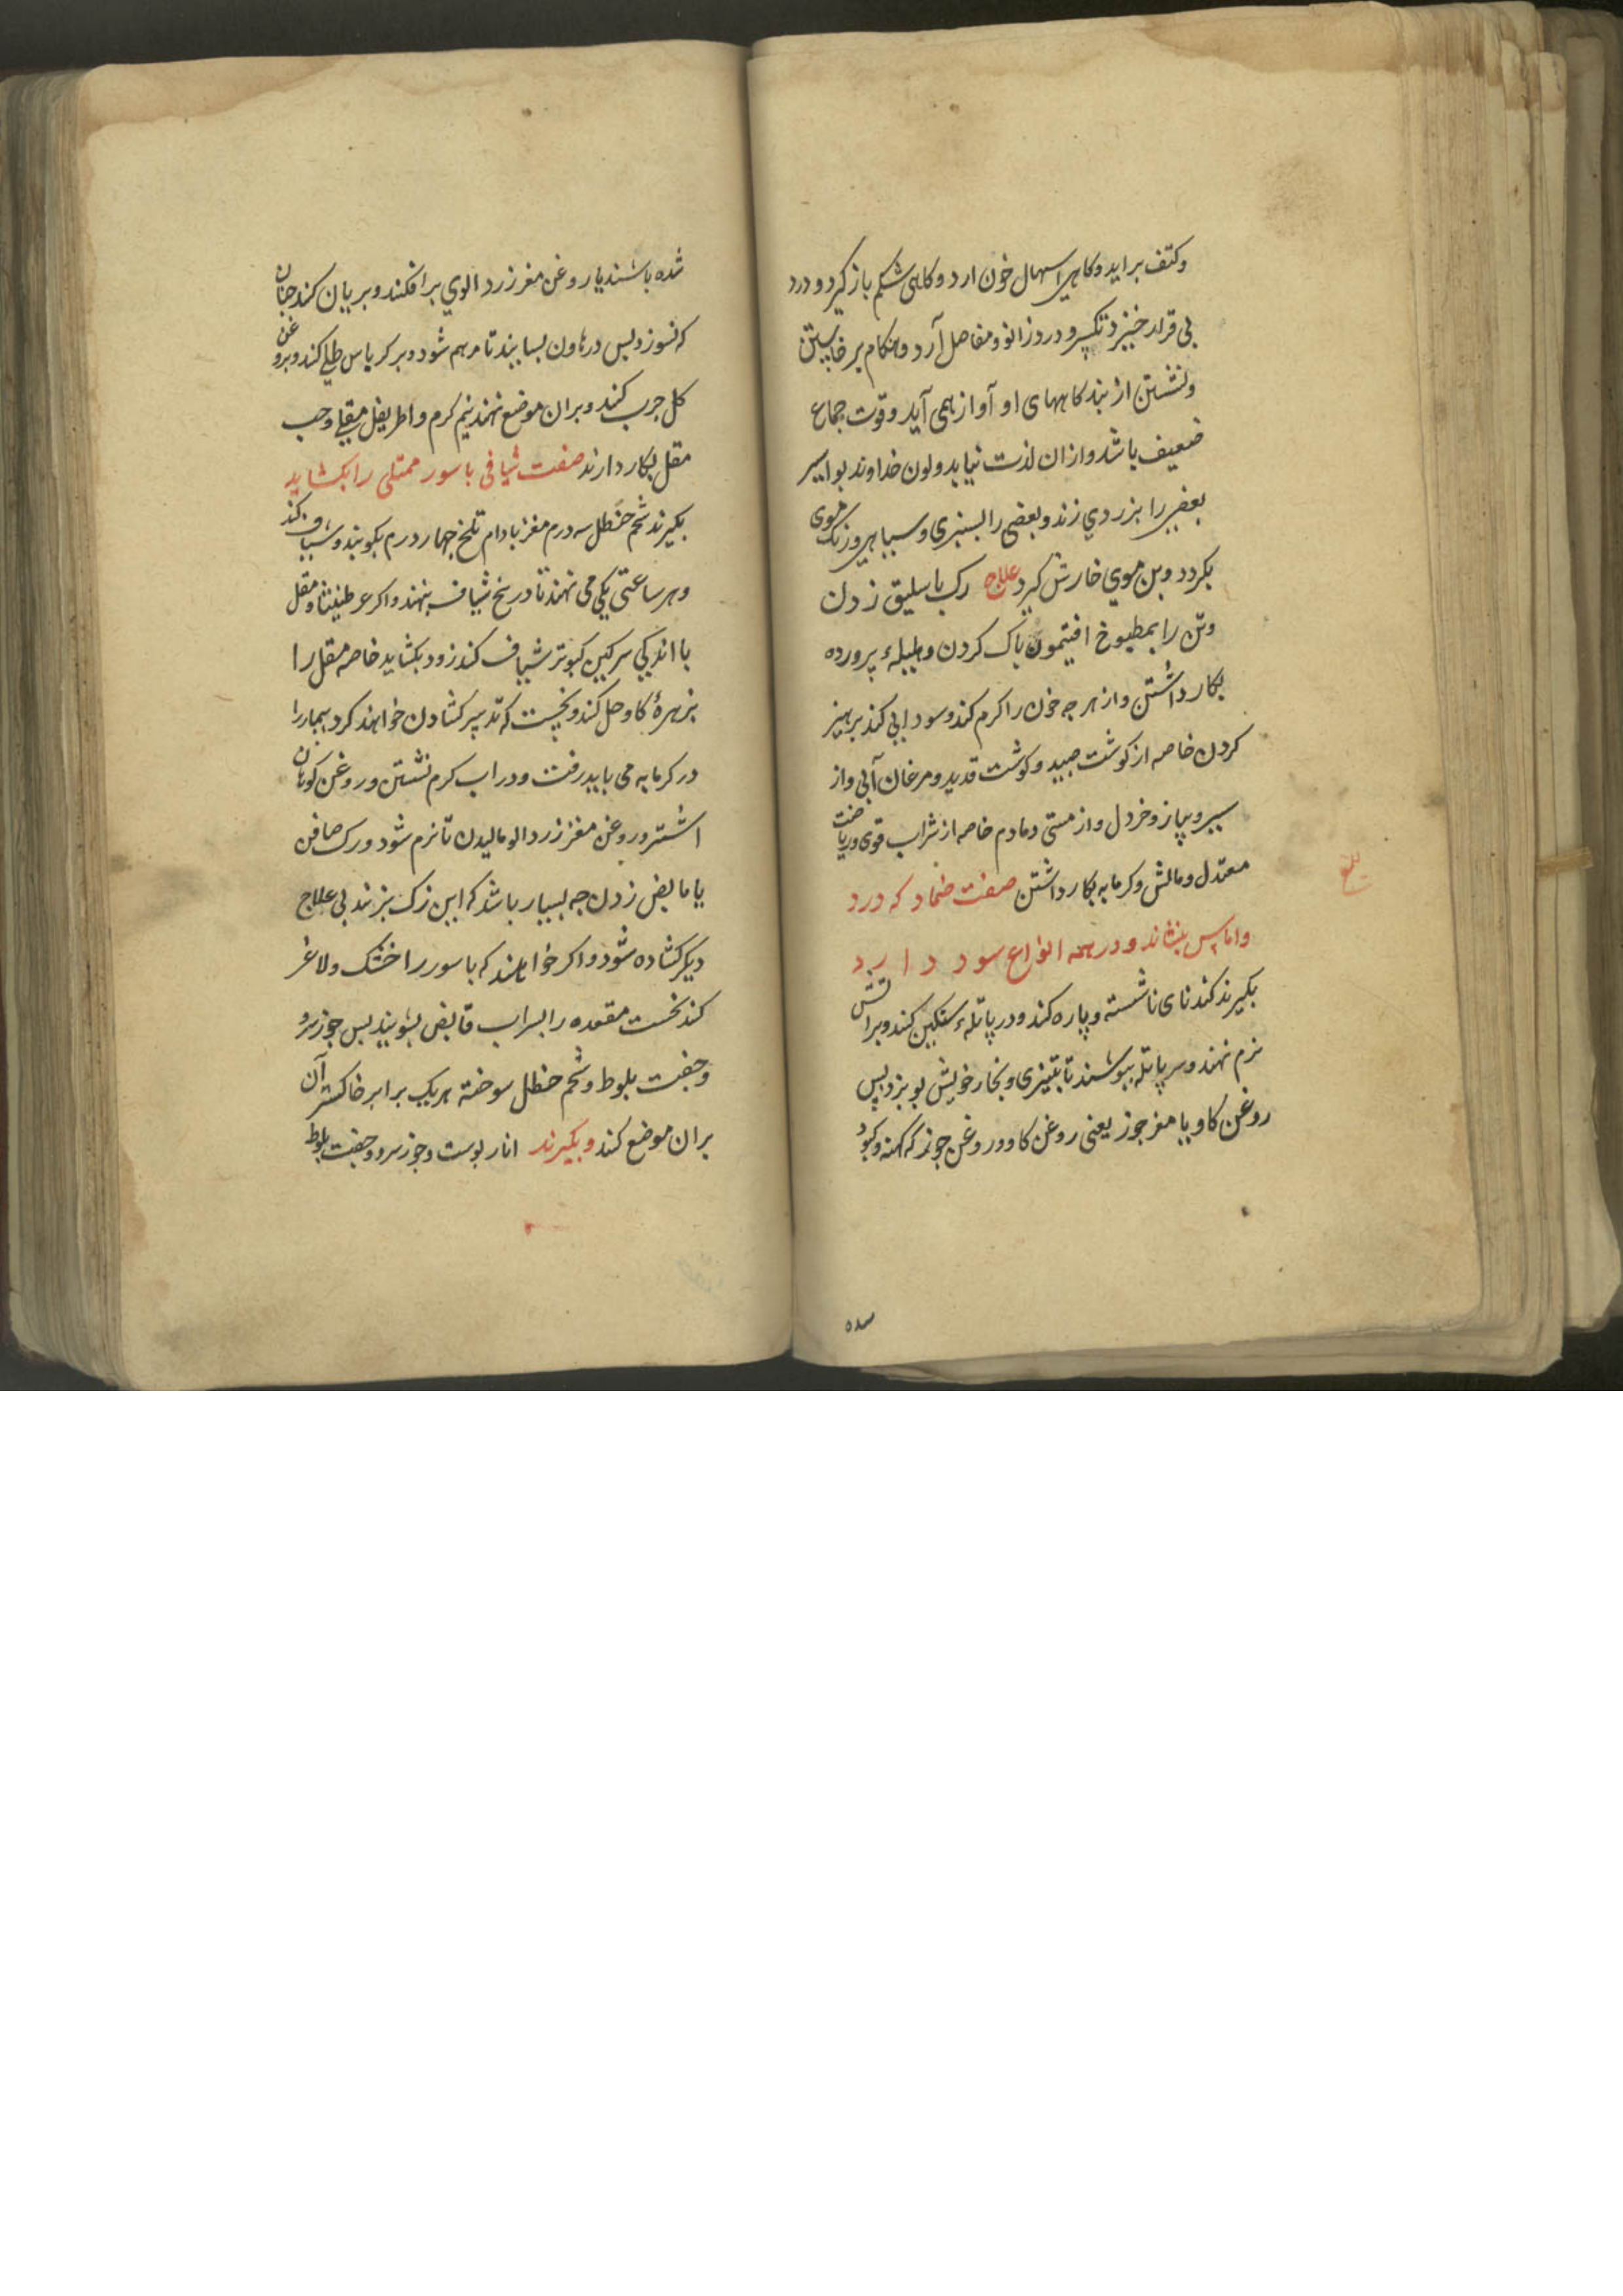 وکتف براید وکاهی اسهال خون ارد وکاهی شکم باز کیرد ودرد
بی قرار خیزد درزانو ومفاصل آرد وهنکام برخاستن
ونشستن از بندکاههای او آواز همی آید وقوت جماع
ضعیف باشد وازان لذت نیابد ولون خداوند بواسیر
بعضی را بزردی زند وبعضی را بسبزی وسیاهی ورنک موی
بکردد وبن موی خارش کیرد علاج رک باسلیق زدن
وتن را بمطبوخ افتیمون پاک کردن وهلیلهٔ پرورده
بکار داشتن واز هرجه خون را کرم کند وسودایی کند برهیز
کردن خاصه از کوشت صید وکوشت قدید ومرغان آبی واز
سیر وپیاز وخردل واز مستی دمادم خاصه از شراب قوی وریاضت
معتدل ومالش وکرمابه بکار داشتن صفت ضماد که درد
واماس بنشاند ودر همه انواع سود دارد
بکیرند کندنای ناشسته وپاره کند ودر پاتلهٔ سنکین کند وبراتش
نرم نهند وسر پاتله ببوشند تا بتیزی وبخار خویش بوبزد پس
روغن کاو یا مغز جوز یعنی روغن کاو وروغن جوز که کهنه وکبود
شده باشند یا روغن مغز زردالوی برافکند وبریان کند جنان
که نسوزد بس درهاون بسایند تا مرهم شود وبرکرباس طلی کند وبروغن
کل جرب کند وبران موضع نهند نیم کرم واطریفل مقلی وحب
مقل بکار دارند صفت شیافی باسور ممتلی را بکشاید
بکیرند شحم حنظل سه درم مغز بادام تلخ جهار درم بکوبند وشیاف کند
وهر ساعتی یکی می نهند تا در پنج شیاف بنهند واکر عرطنیثا ومقل
با اندکی سرکین کبوتر شیاف کند زود بکشاید خاصه مقل را
بزهرهٔ کاو حل کند ونخست که تدبیر کشادن خواهند کرد بیمار را
در کرمابه می باید رفت ودر اب کرم نشستن وروغن کوهان
اشتر وروغن مغز زردالو مالیدن تا نرم شود ورک صافن
یا مابض زدن جه بسیار باشد که این رک بزنند بی علاج
دیکر کشاده شود واکر خواهند که باسور را خشک ولاغر
کند نخست مقعده را بسراب قابض بشویند بس جوز سرو
وجفت بلوط وشحم حنظل سوخته هریک برابر خاکستر آن
بران موضع کند وبکیرند انار بوست وجوز سرو وجفت بلوط
شده